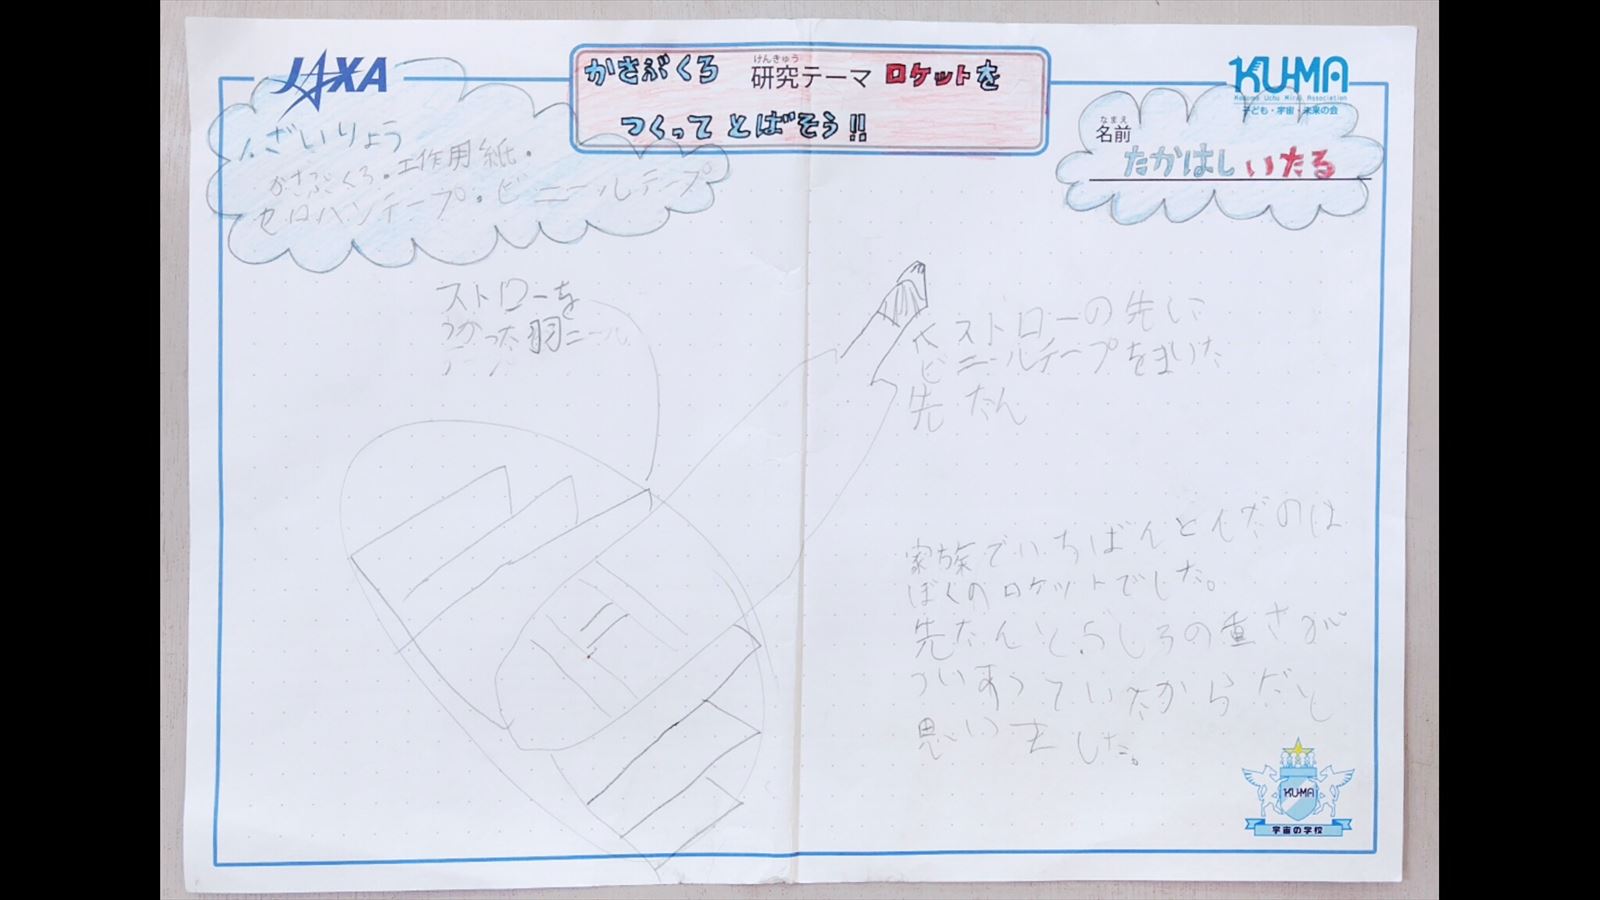 JAXA
かさぶくろ 研究テーマ ロケットを
けんきゅう
つくって とばそう!!
KU-MA
Kodomo Uchu Mirai Association
子ども・宇宙・未来の会
なまえ
名前
たかはし いたる
ざいりょう
かさぶくろ。工作用紙.
セロハンテープ。ビニールテープ
ストローを
つかった羽
ストローの先に
ビニールテープをまいた
先たん
家族でいちばんとんだのは
ぼくのロケットでした。
先たんとうしろの重さが
つりあっていたからだと
思いました。
KU-MA
宇宙の学校